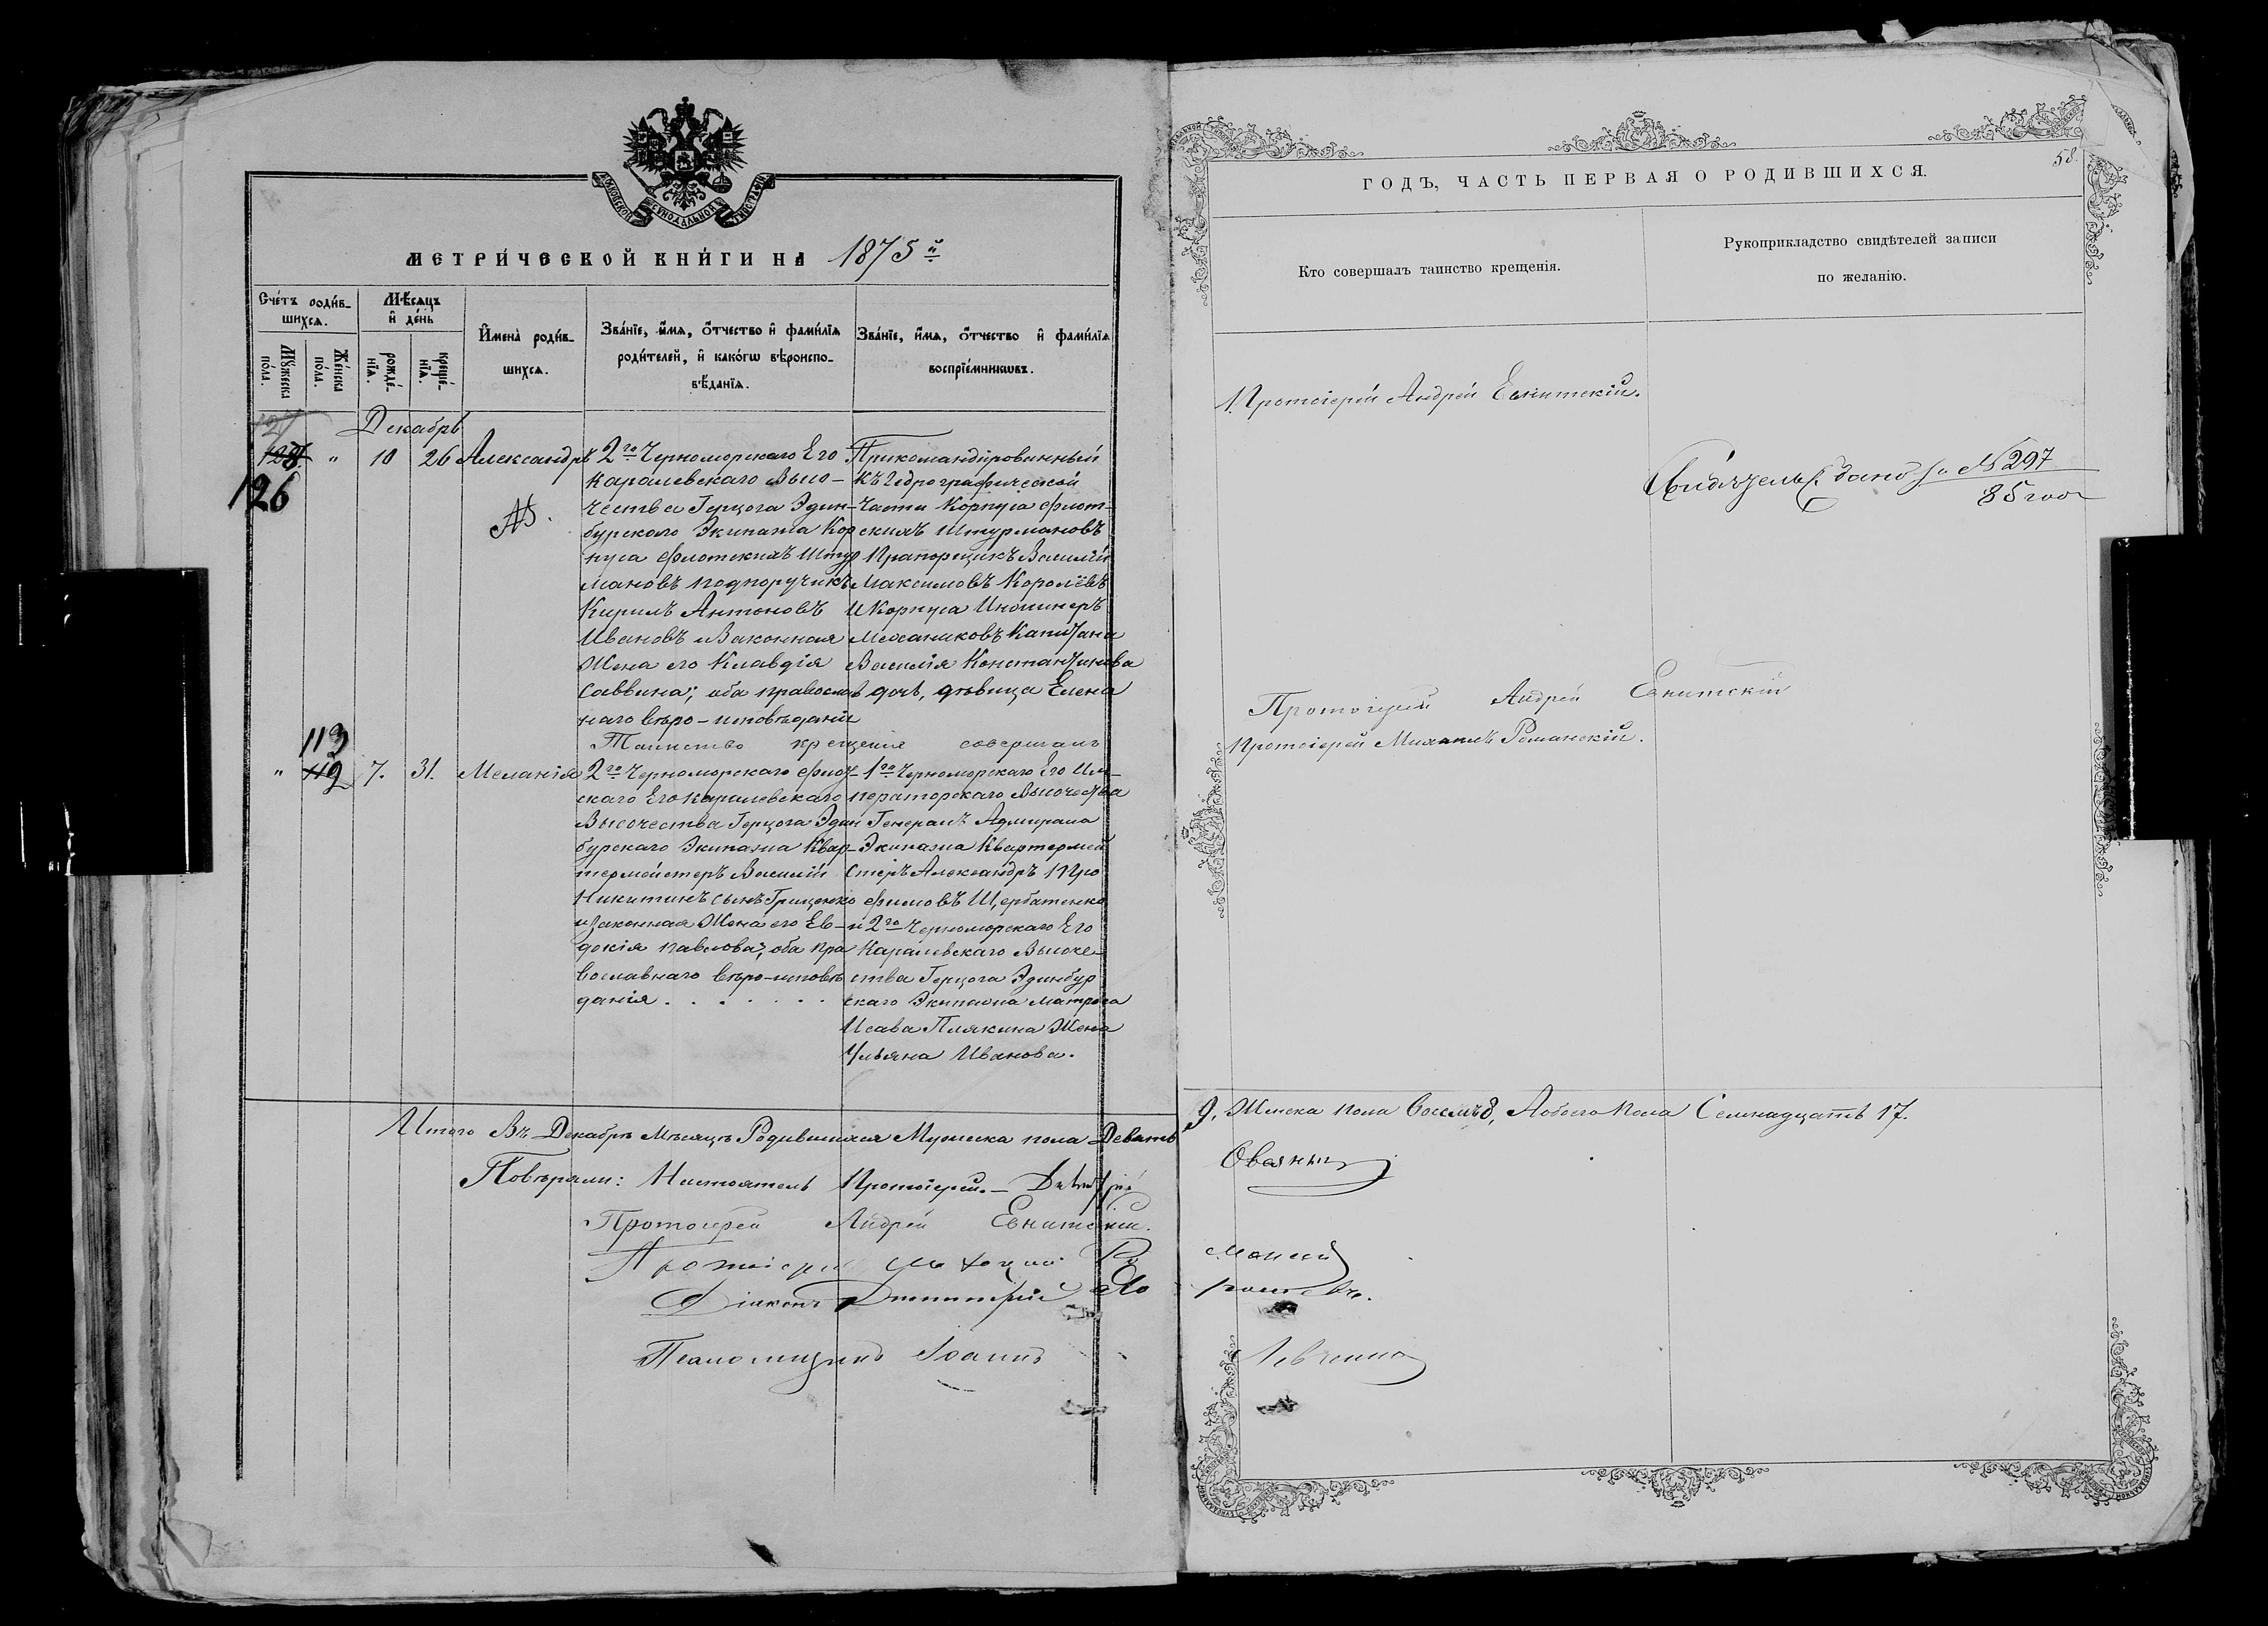 МОСКОВСКОЙ СѴНОДАЛЬНОЙ ТИПОГРАФІИ
МЕТРИ́ЧЕСКОЙ КНИ́ГИ НА 1875й
Сче́тъ роди́в-
шихся.
Мꙋ́жеска по́ла.
Же́нска по́ла.
Мѣ́сяцъ
и҆ де́нь
рожде́-
нїѧ.
креще́-
нїѧ.
И҆мена̀ роди́в-
шихсѧ.
Зва́нїе, и҆́мѧ, ѻ҆́тчество и҆ фами́лїѧ
роди́телей, и҆ како́гѡ вѣроиспо-
вѣ́данїѧ.
Зва́нїе, и҆́мѧ, ѻ҆́тчество и҆ фами́лїѧ
воспрїе́мникѡвъ.
Декабрь
128.
126
" 10 26 Александръ
2го Черноморскаго Его
Каралевскаго Высо-
чества Герцога Эдин-
бурскаго Экипажа Кор
пуса флотскихъ Штур
мановъ подпоручикъ
Кирилъ Антоновъ
Ивановъ и Законная
Жена его Клавдія
Саввина; оба православ
наго веро-исповѣданія
Прикомандированный
Къ Гедрографической
Части Корпуса флот-
скихъ Штурмановъ
Прапорщикъ Василій
Максимовъ Королёвъ
И Корпуса Инжинеръ
Механиковъ Капитана
Василія Константинова
дочь, дѣвица Елена
Таинство крещенія совершалъ
113
112
" 7. 31. Меланія
2го Черноморскаго флот-
скаго Его Каралевскаго
Высочества Герцога Эдин
бурскаго Экипажа Квар-
термейстеръ Василій
Никитинъ сынъ Гриценко
и Законная Жена его Ев-
докія Павлова; оба пра
вославнаго веро-исповѣ
данія . . . . . . .
1го Черноморскаго Его Им-
ператорскаго Высочества
Генералъ Адмирала
Экипажа Квартермей
стеръ Александръ Про
фимовъ Щербатенко
и 2го Черноморскаго Его
Каралевскаго Высоче-
ства Герцога Эдинбур
скаго Экипажа Матроса
Исава Плякина Жена
Ульяна Иванова.
Итого Въ Декабрѣ Мѣсяцѣ Родившихся Мужеска пола Девять
Повѣряли: Настоятель Протоіерей.
Протоіерей Андрей Евнитскій.
Протоіерей Михаилъ Ро
Діаконъ Дмитрій
Псаломщикъ Іоаннъ
58.
ГОДЪ, ЧАСТЬ ПЕРВАЯ О РОДИВШИХСЯ.
Кто совершалъ таинство крещенія.
Рукоприкладство свидѣтелей записи
по желанію.
Протоіерей Андрей Евнитскій.
Свидѣтельс. дано за № 297
85 года
Протоіерей Андрей Евнитскій
Протоіерей Михаилъ Романскій.
9, Женска пола Восемь 8, Абоего Пола Семнадцать 17.
манскій
Левченко